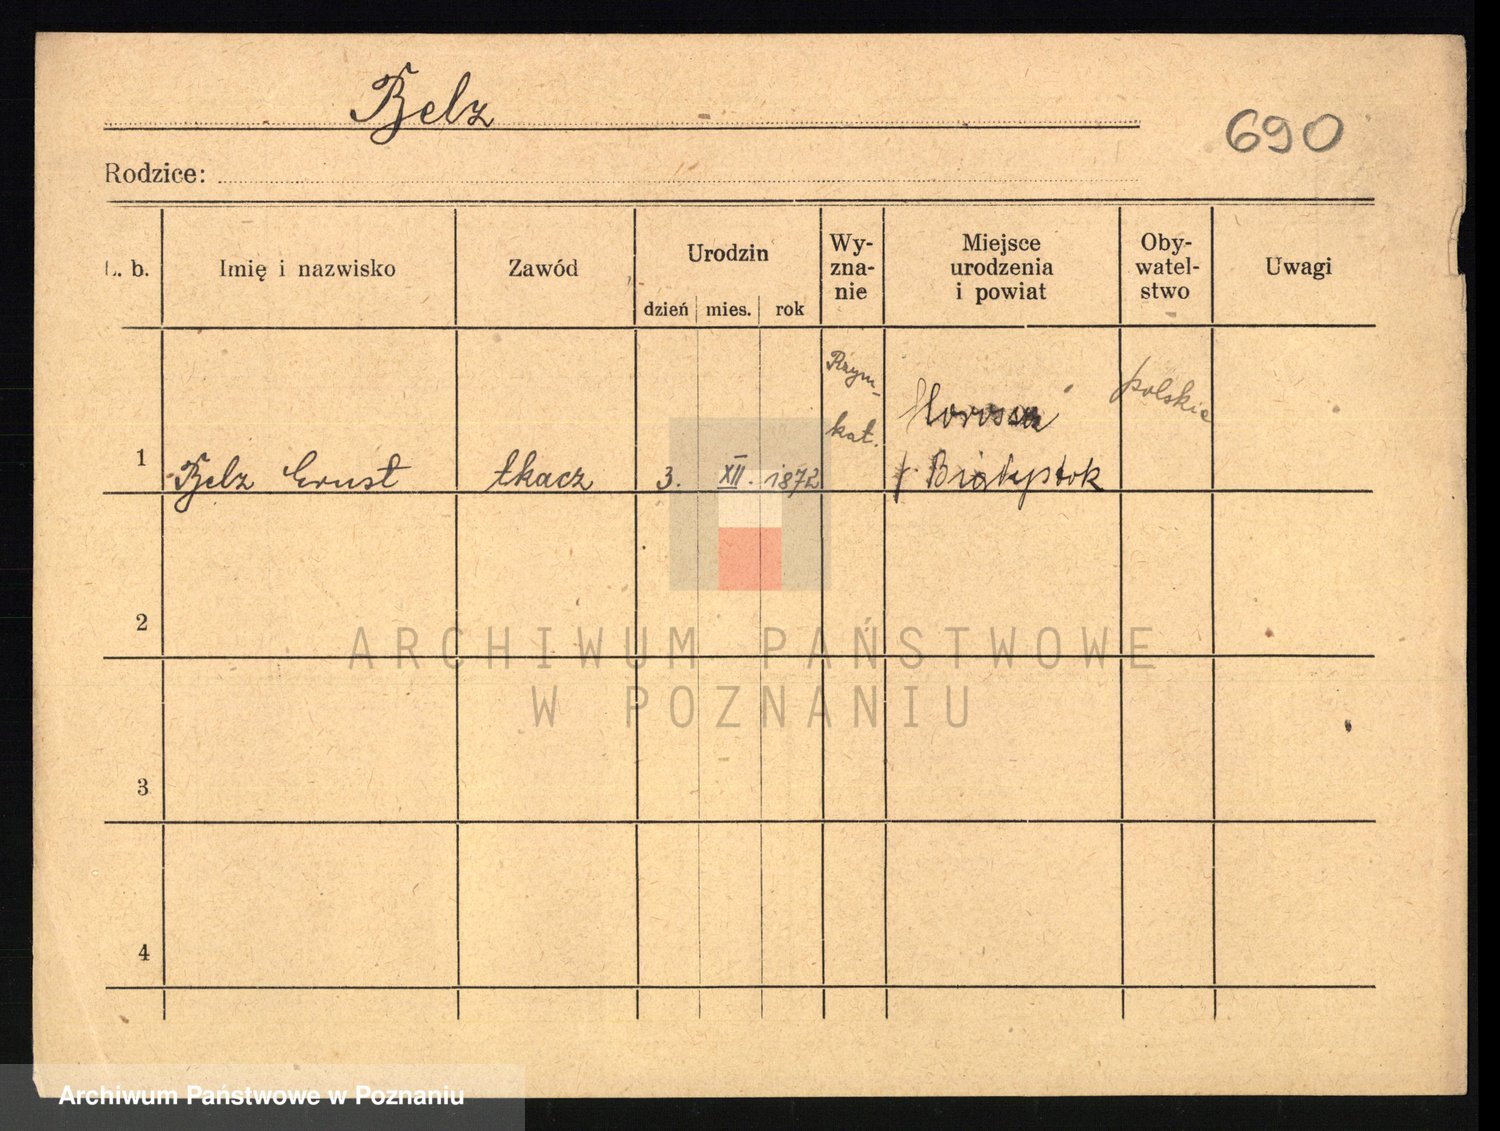 Belz
690
Rodzice:
L. b.
Imię i nazwisko
Zawód
Urodzin
dzień
mies.
rok
Wy-
zna-
nie
Miejsce
urodzenia
i powiat
Oby-
watel-
stwo
Uwagi
1
Belz Ernst
tkacz
3.
XII.
1872
Rzym-
kat.
Białystok
polskie
2
3
4
ARCHIWUM PAŃSTWOWE
W POZNANIU
Archiwum Państwowe w Poznaniu